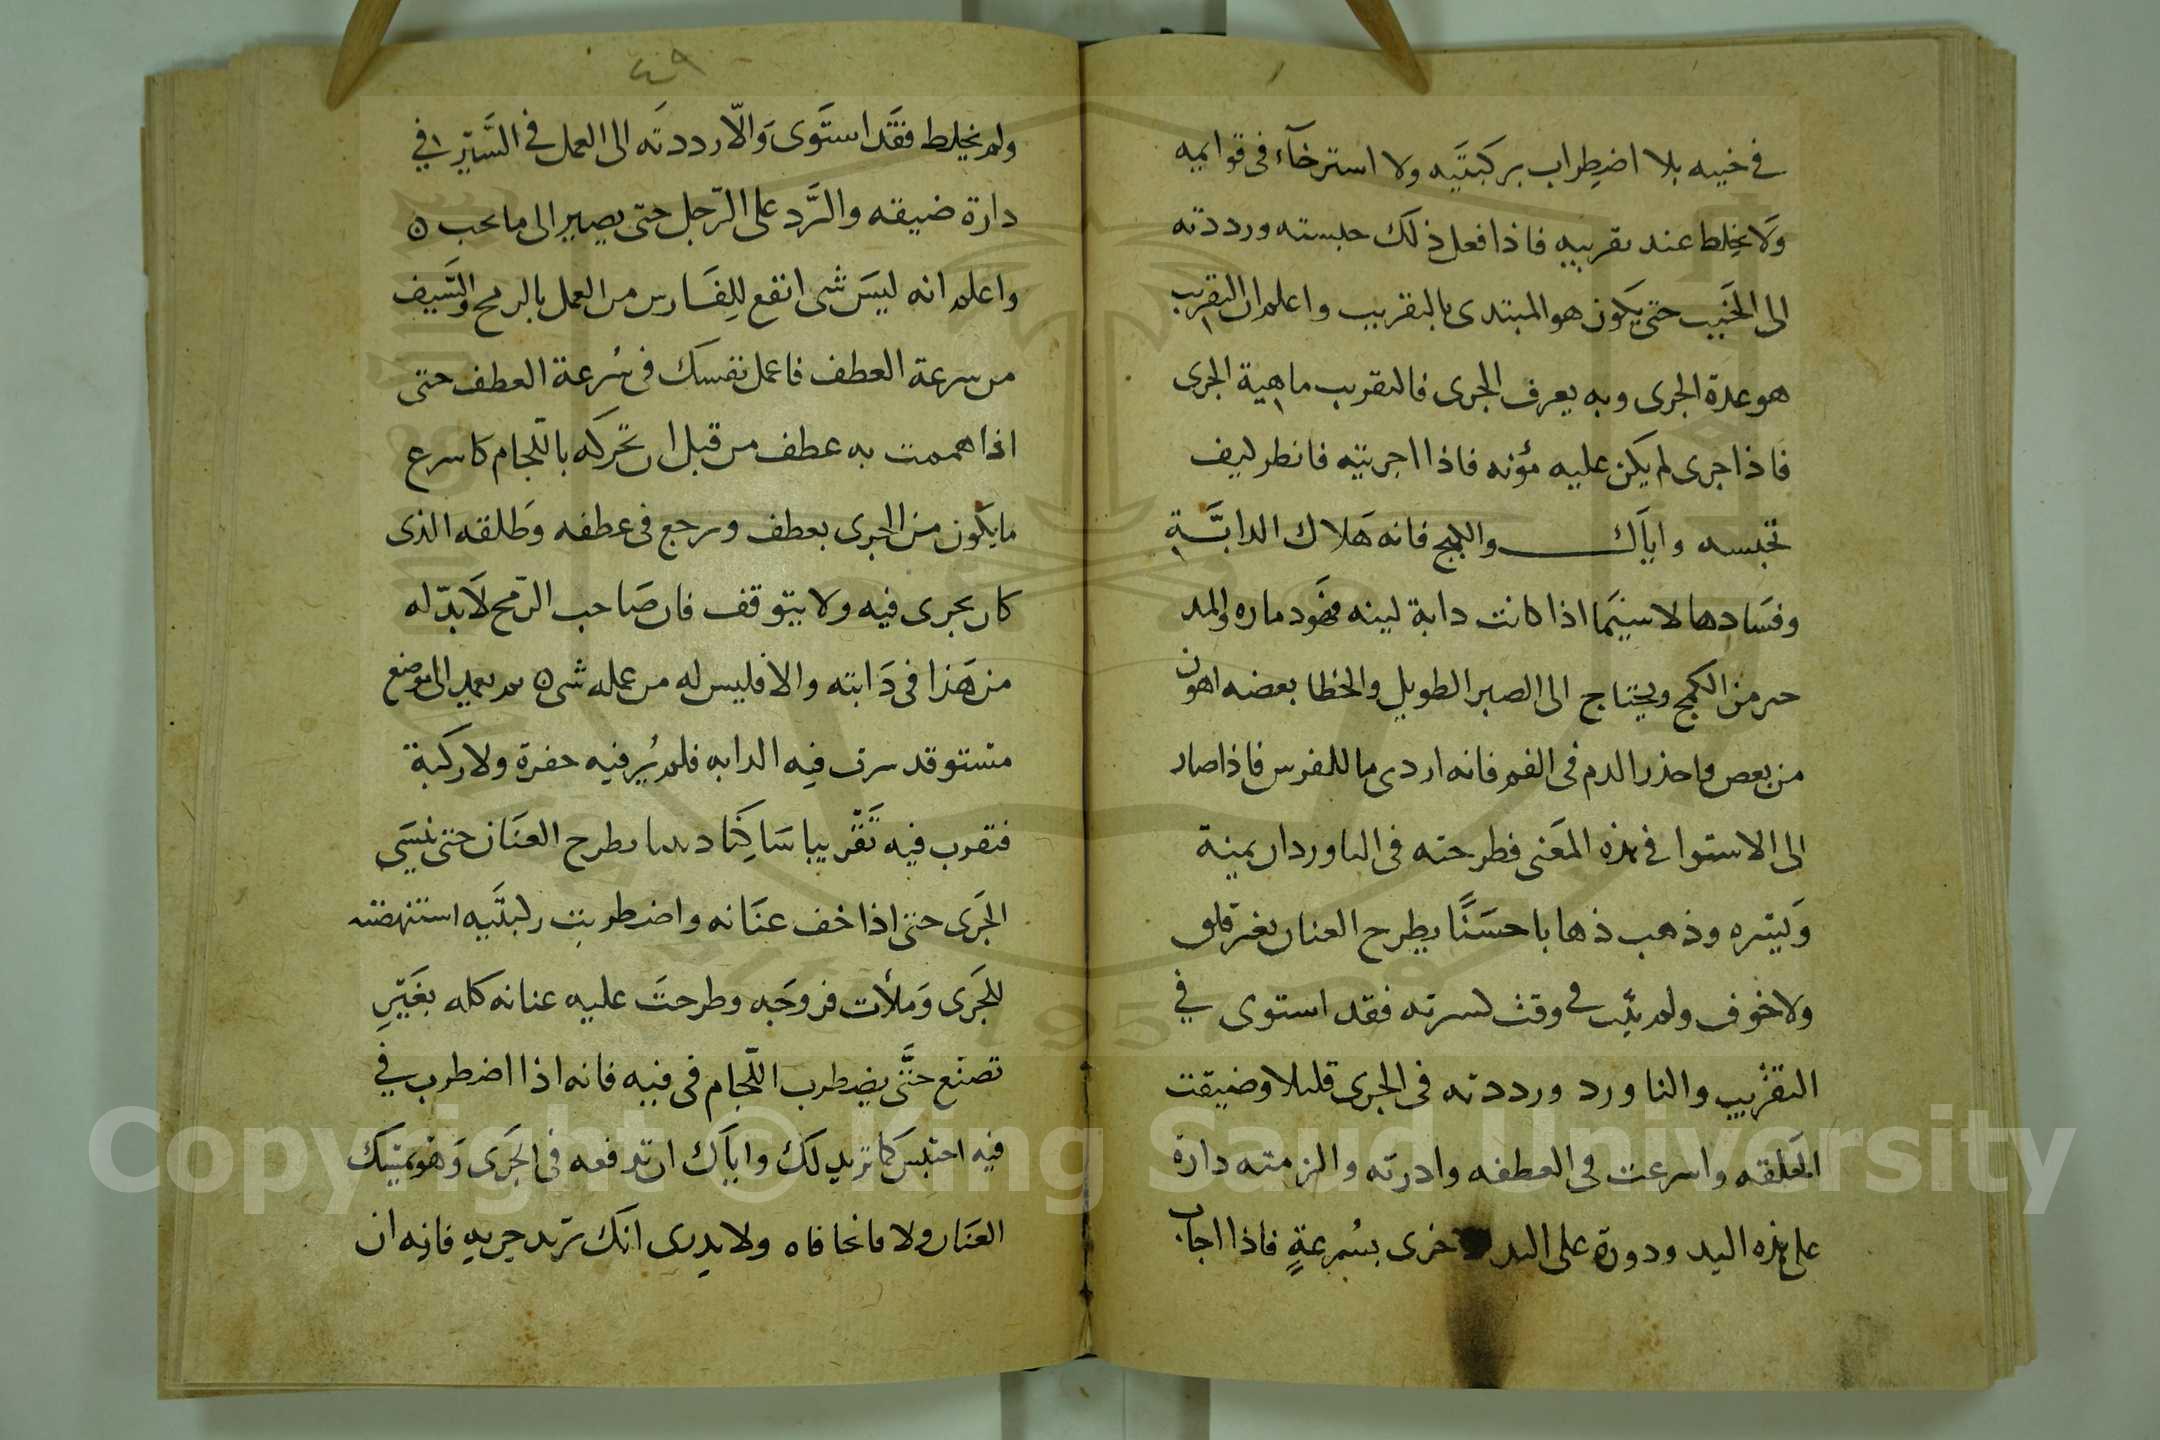 في خببه بلا اضطراب بركبتيه ولا استرخآء في قوايمه
ولا يخلط عند تقريبه فاذا فعل ذلك حبسته ورددته
الى الخبب حتى يكون هو المبتدى بالتقريب واعلم ان التقريب
هو عدة الجرى وبه يعرف الجرى فالتقريب ماهية الجرى
فاذا جرى لم يكن عليه مؤنه فاذا اجريته فانظر ليف
تحبسه واياك والكبح فانه هلاك الدابة
وفسادها لا سيما اذا كانت دابة لينه
من الكبح ويحتاج الى الصبر الطويل والخطا بعضه اهون
من بعض واحذر الدم في الفم فانه اردى ما للفرس فاذا صار
الى الاستوا في هذه المعنى فطرحته في الناوردان يمينة
ويسره وذهب ذهابا حسنًا بطرح العنان بغير قلق
ولا خوف ولم يثب في وقت فقد استوى في
التقريب والناورد ورددته في الجرى قليلا وضيقت
الحلقه واسرعت في العطفه وادرته والزمته دارة
على هذه اليد ودورة على اليد خرى بسرعةٍ فاذا اجاب
٤٩
ولم يخلط فقد استوى والّا رددته الى العمل في السير في
دارة ضيقه والرد على الرجل حتى يصير الى ما تحب ه
واعلم انه ليس شى انفع للفارس من العمل بالرمح والسيف
من سرعة العطف فاعمل نفسك في سرعة العطف حتى
اذا هممت به عطف من قبل ان تحركه باللجام كاسرع
ما يكون من الجرى بعطف ورجع في عطفه وطلقه الذى
كان يجرى فيه ولا يتوقف فان صاحب الرمح لا بدّ له
من هذا في دابته والا فليس له من عمله شى ه ثم تعمد الى موضع
مستو قد سرت فيه الدابه فلم ير فيه حفرة ولا ركبة
فتقرب فيه تقريبا ساكنا بطرح العنان حتى ينسى
الجرى حتى اذا خف عنانه واضطربت استنهضته
للجرى وملأت فروجه وطرحت عليه عنانه كله بغير
تصنع حتى يضطرب اللجام في فيه فانه اذا اضطرب في
فيه احتبس كما تريد لك واياك ان تدفعه في الجرى وهو يمسك
العنان ولا فاتحا فاه ولا يدرى انك تريد جريه فانه ان
Copyright © King Saud University